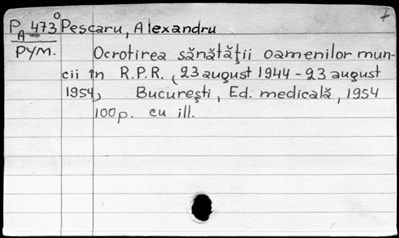 P 473° Pescaru, Alexandru
A
РУМ. Ocrotirea sănătăţii oamenilor mun-
cii în R.P.R. (23 august 1944 - 23 august
1954), Bucureşti, Ed. medicală, 1954
100p. cu ill.